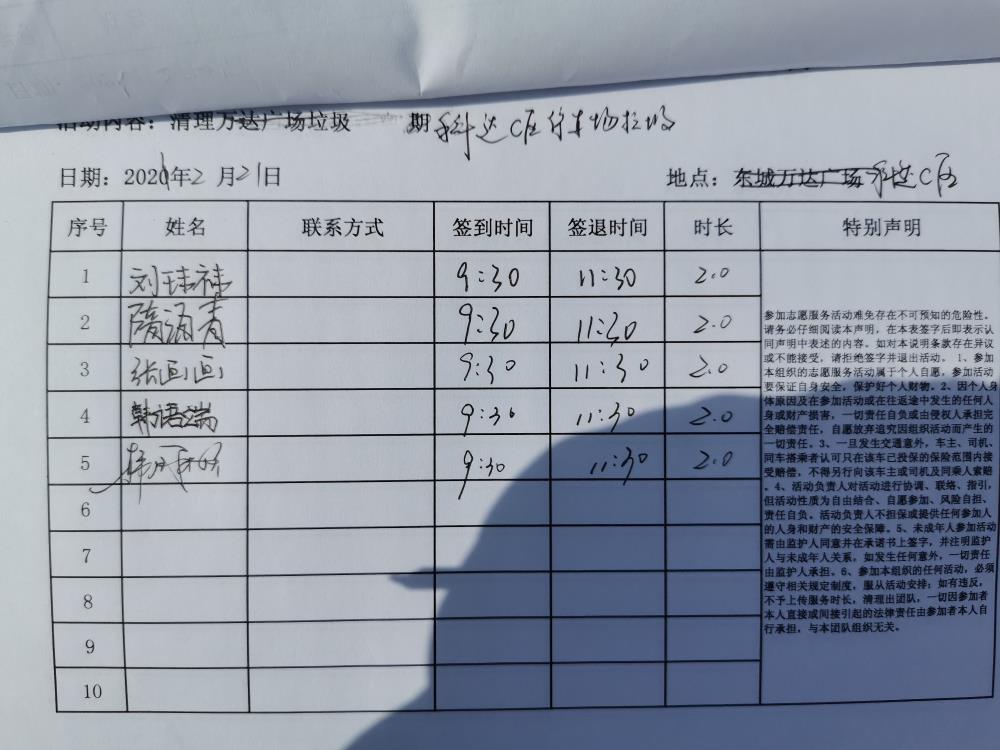 活动内容：清理万达广场垃圾 期科达C区停车场垃圾
日期：2021年2月21日 地点：东城万达广场 科达C区
序号 姓名 联系方式 签到时间 签退时间 时长 特别声明
1 刘 9:30 11:30 2.0
2 隋 青 9:30 11:30 2.0
3 张画画 9:30 11:30 2.0
4 韩语端 9:30 11:30 2.0
5 9:30 11:30 2.0
6
7
8
9
10
参加志愿服务活动难免存在不可预知的危险性。
请务必仔细阅读本声明，在本表签字后即表示认
同声明中表述的内容。如对本说明条款存在异议
或不能接受，请拒绝签字并退出活动。 1、参加
本组织的志愿服务活动属于个人自愿，参加活动
要保证自身安全，保护好个人财物。2、因个人身
体原因及在参加活动或在往返途中发生的任何人
身或财产损害，一切责任自负或由侵权人承担完
全赔偿责任，自愿放弃追究因组织活动而产生的
一切责任。3、一旦发生交通意外，车主、司机、
同车搭乘者认可只在该车已投保的保险范围内接
受赔偿，不得另行向该车主或司机及同乘人索赔
。4、活动负责人对活动进行协调、联络、指引，
但活动性质为自由结合、自愿参加、风险自担、
责任自负。活动负责人不担保或提供任何参加人
的人身和财产的安全保障。5、未成年人参加活动
需由监护人同意并在承诺书上签字，并注明监护
人与未成年人关系。如发生任何意外，一切责任
由监护人承担。6、参加本组织的任何活动，必须
遵守相关规定制度，服从活动安排；如有违反，
不予上传服务时长，清理出团队，一切因参加者
本人直接或间接引起的法律责任由参加者本人自
行承担，与本团队组织无关。